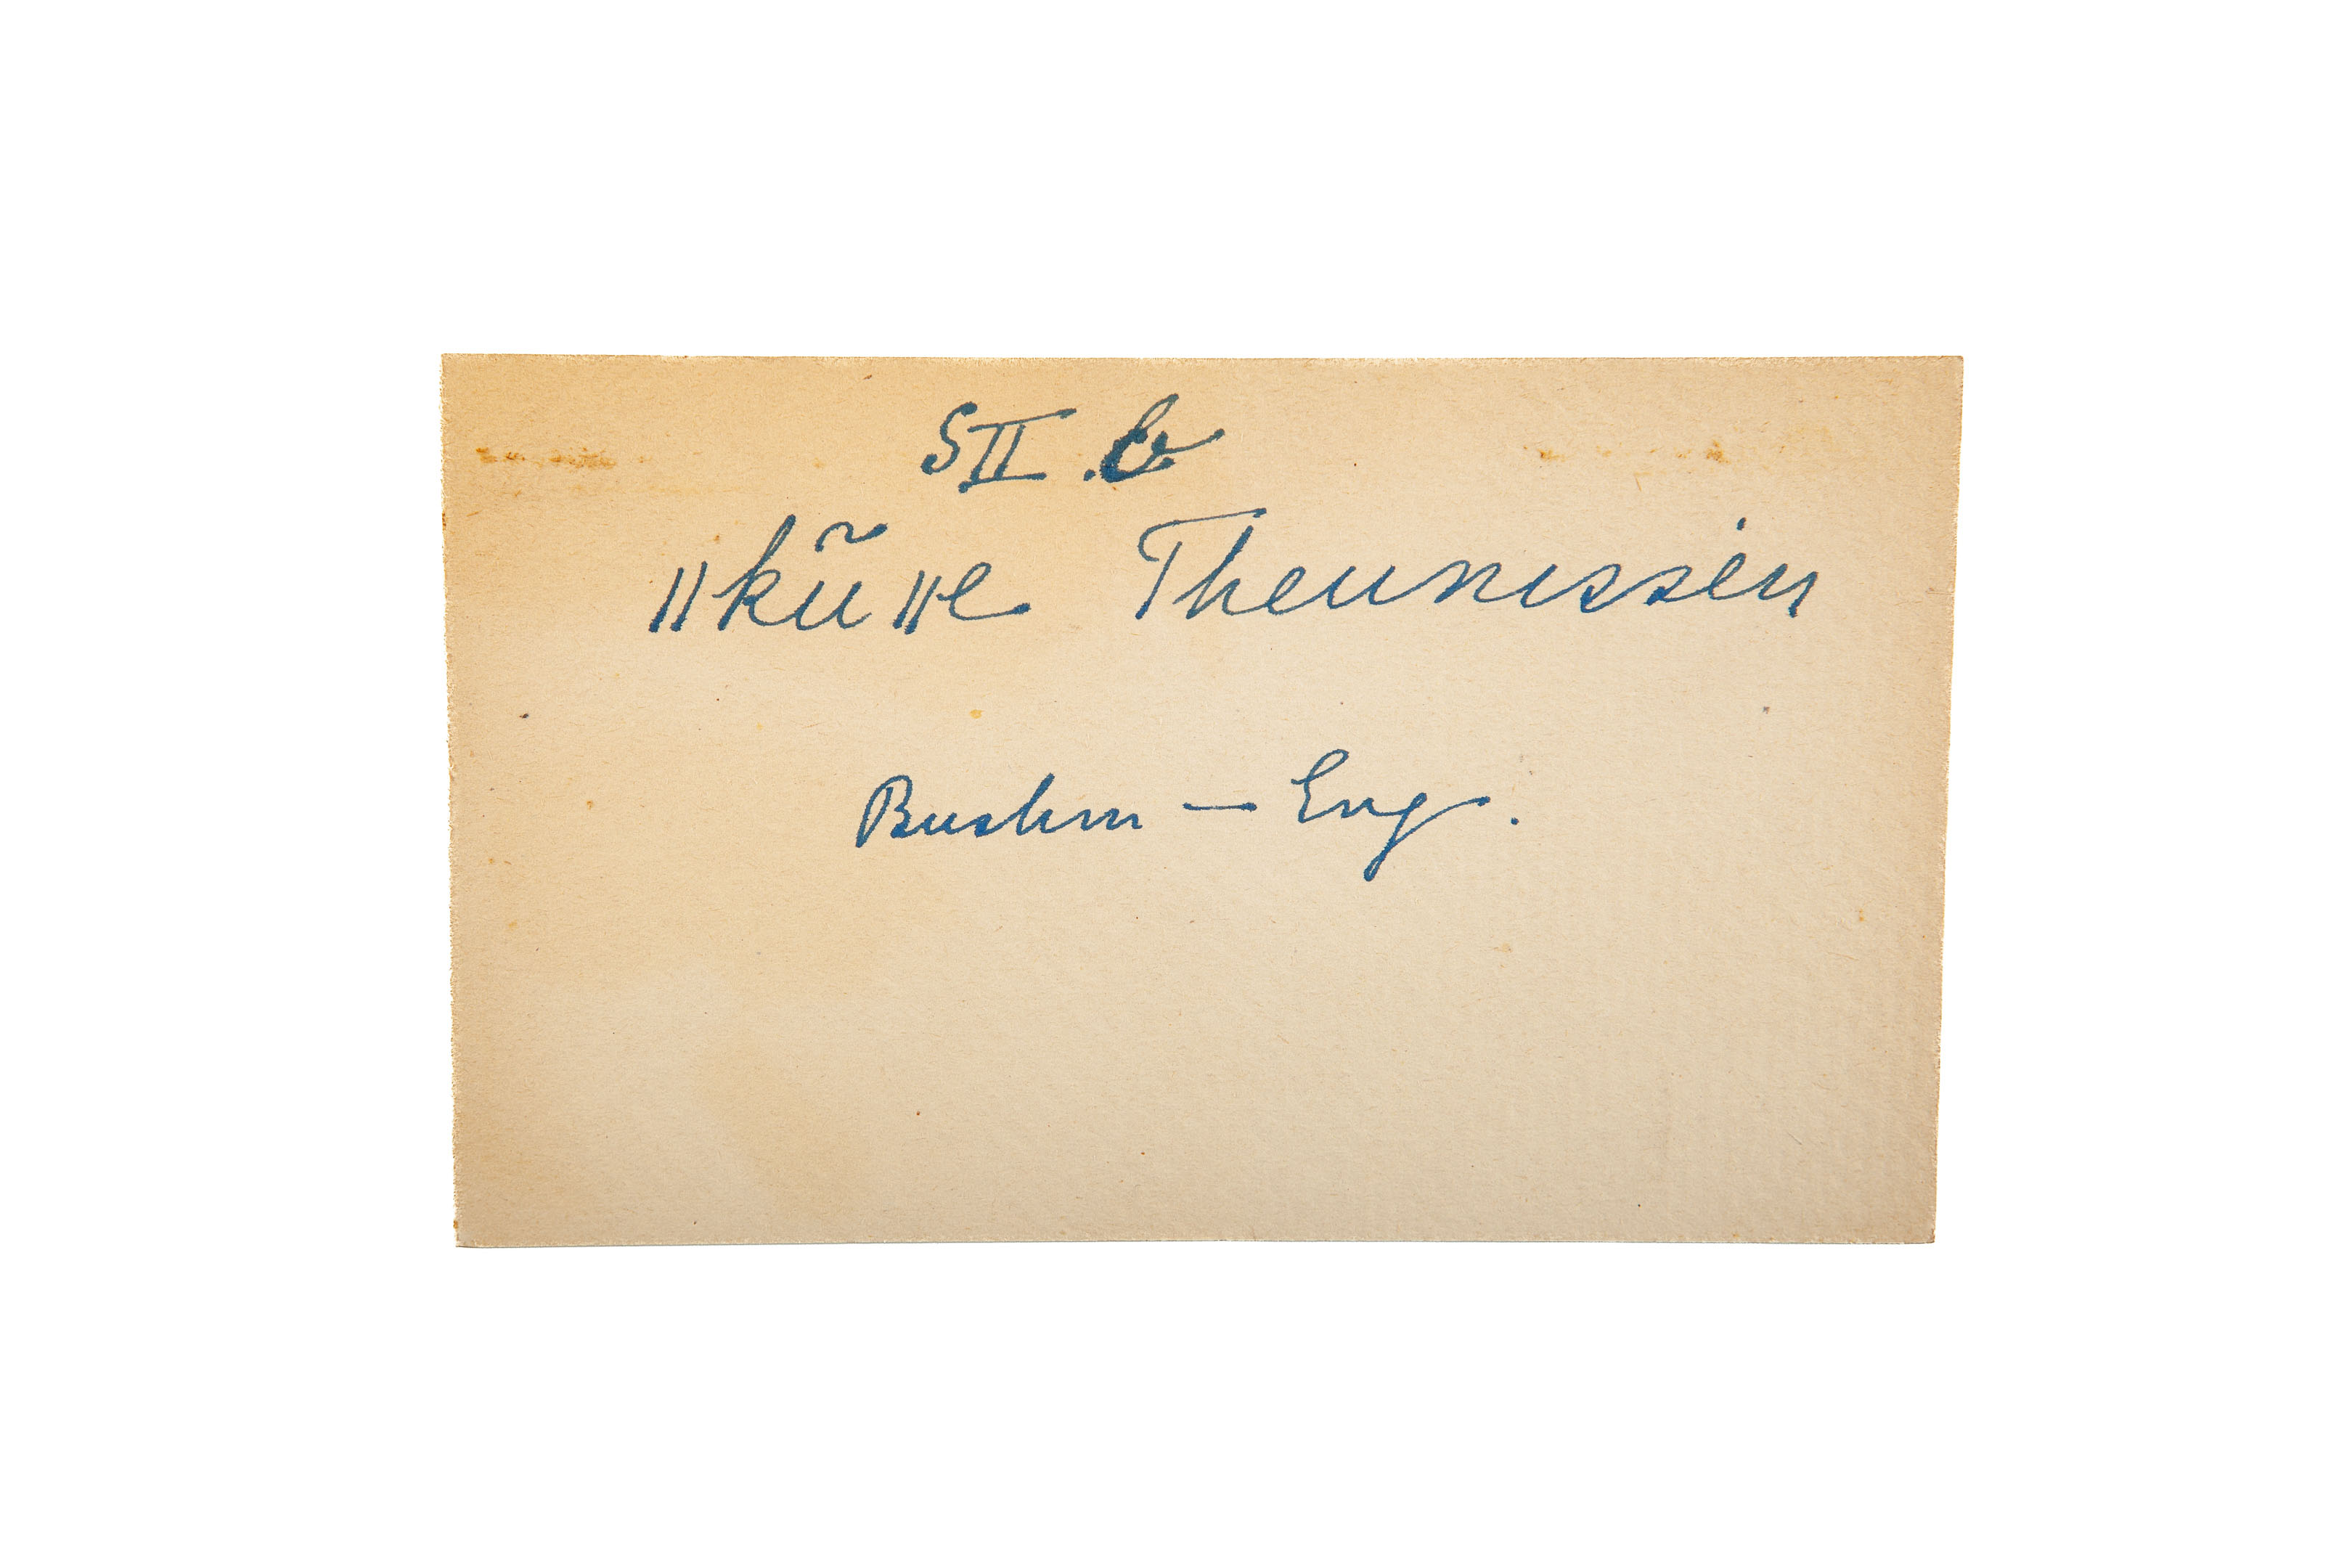 SII.b
ǁkũǁe Theunissen
Bushm — Eng.